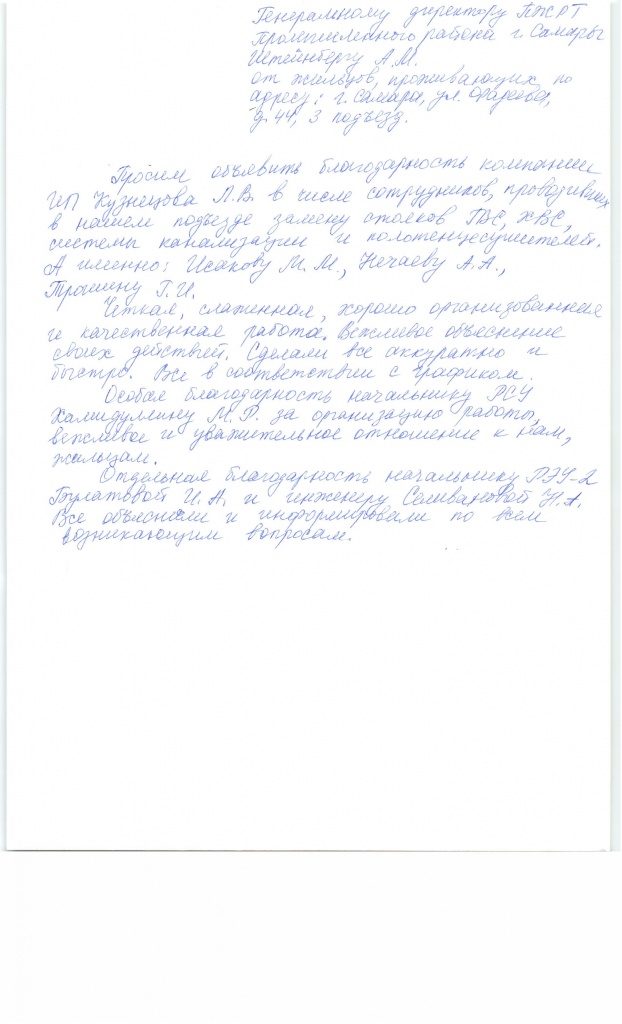 Генеральному директору ПЖРТ
Промышленного района г. Самары
Штейнбергу А.М.
от жильцов, проживающих по
адресу: г. Самара, ул. Фадеева,
д. 44, 3 подъезд.
Просим объявить благодарность компании
ИП Кузнецова Л.В. в числе сотрудников, проводивших
в нашем подъезде замену стояков ГВС, ХВС,
системы канализации и полотенцесушителей.
А именно: Исакову М.М., Нечаеву А.А.,
Трошину Г.И.
Четкая, слаженная, хорошо организованная
и качественная работа. Вежливое объяснение
своих действий. Сделали все аккуратно и
быстро. Все в соответствии с графиком.
Особая благодарность начальнику РСУ
Халидуллину М.Р. за организацию работы,
вежливое и уважительное отношение к нам,
жильцам.
Отдельная благодарность начальнику РЭУ-2
Булатовой И.А. и инженеру Селивановой Н.А.
Все объясняли и информировали по всем
возникающим вопросам.